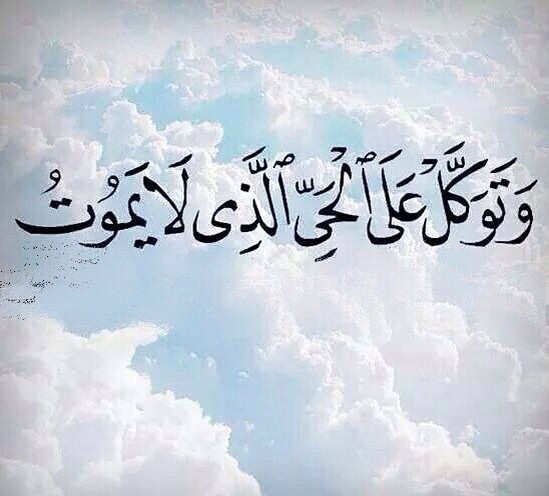 وَتَوَكَّلْ عَلَى ٱلْحَىِّ ٱلَّذِى لَا يَمُوتُ